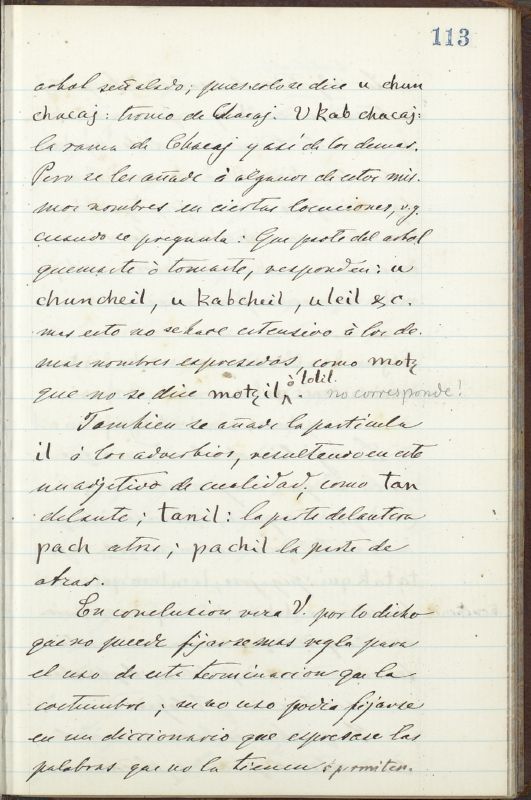 113
arbol señalado; pues solo se dice u chun
chacaj: tronco de Chacaj. U kab chacaj:
la rama de Chacaj y asi de los demas.
Pero se les añade à algunos de estos mis-
mos nombres en ciertas locuciones, v.g.
cuando se pregunta: Que parte del arbol
quemaste ò tomaste, responden: u
chuncheil, u kabcheil, u leil &c.
mas esto no se hace estensivo à los de-
mas nombres espresados, como motz
que no se dice motzil ò lolil. no corresponde!
Tambien se añade la particula
il à los adverbios, resultando en este
un adjetivo de cualidad, como tan
delante; tanil: la parte delantera
pach atras; pachil la parte de
atras.
En conclusion vera V. por lo dicho
que no puede fijarse mas regla para
el uso de esta terminacion que la
costumbre; su no uso podia fijarse
en un diccionario que espresase las
palabras que no la tienen ò permiten.